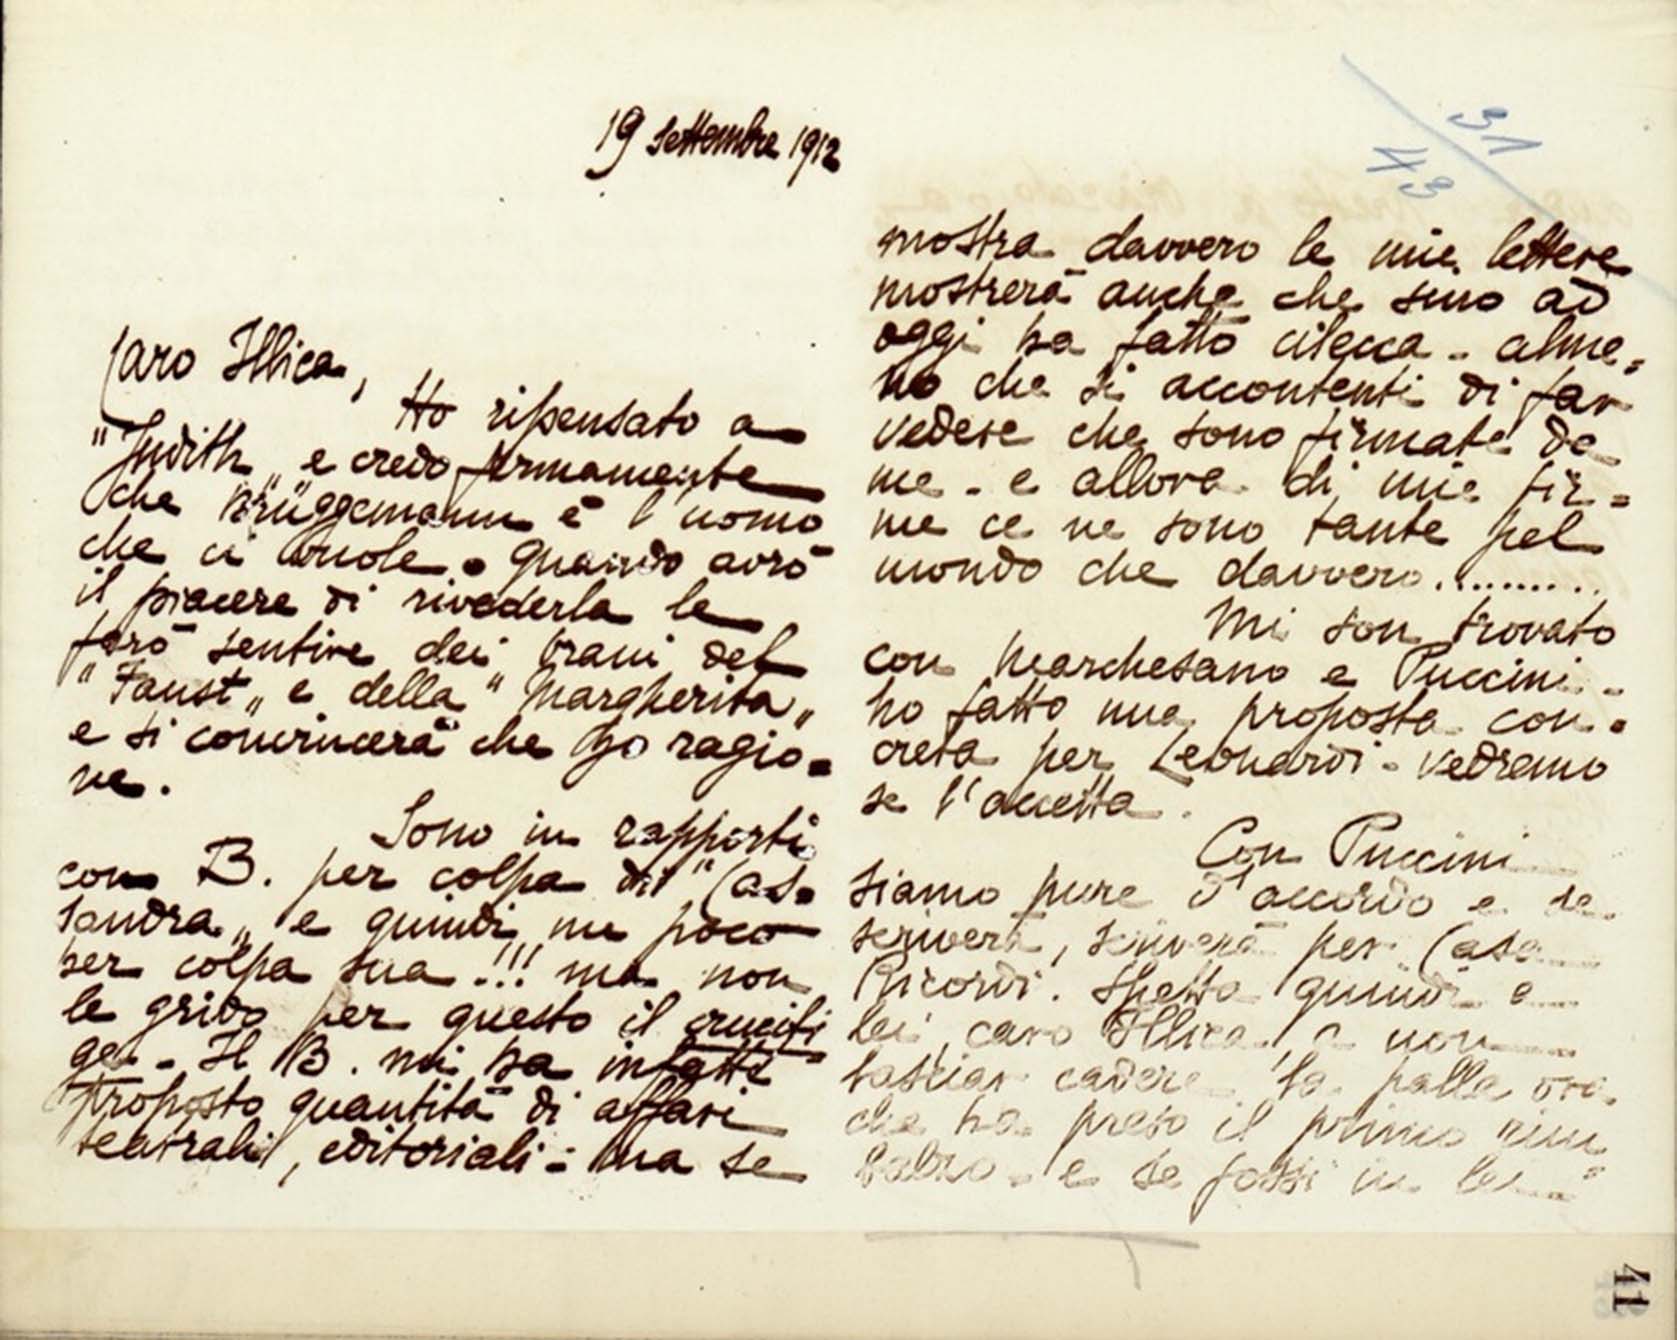 19 settembre 1912
Caro Illica,
Ho ripensato a
"Judith„ e credo fermamente
che Brüggemann è l'uomo
che ci vuole. Quando avrò
il piacere di rivederla le
farò sentire dei brani del
"Faust„ e della "Margherita„
e si convincerà che ho ragio=
ne.
Sono in rapporti
con B. per colpa di "Cas=
sandra„ e quindi un poco
per colpa sua!!! ma non
le grido per questo il crucifi
ge. Il B. mi ha infatti
proposto quantità di affari
teatrali, editoriali - ma se
31
43
mostra davvero le mie lettere
mostrerà anche che sino ad
oggi ha fatto cilecca - alme=
no che si accontenti di far
vedere che sono firmate da
me - e allora di mie fir=
me ce ne sono tante pel
mondo che davvero..........
Mi son trovato
con Marchesano e Puccini -
ho fatto una proposta con=
creta per Leonardi - vedremo
se l'accetta.
Con Puccini
siamo pure d'accordo e se
scriverà, scriverà per Casa
Ricordi. Spetta quindi a
lei, caro Illica, a non
lasciar cadere la palla ora
che ha preso il primo rim=
balzo - e se fossi in lei
41